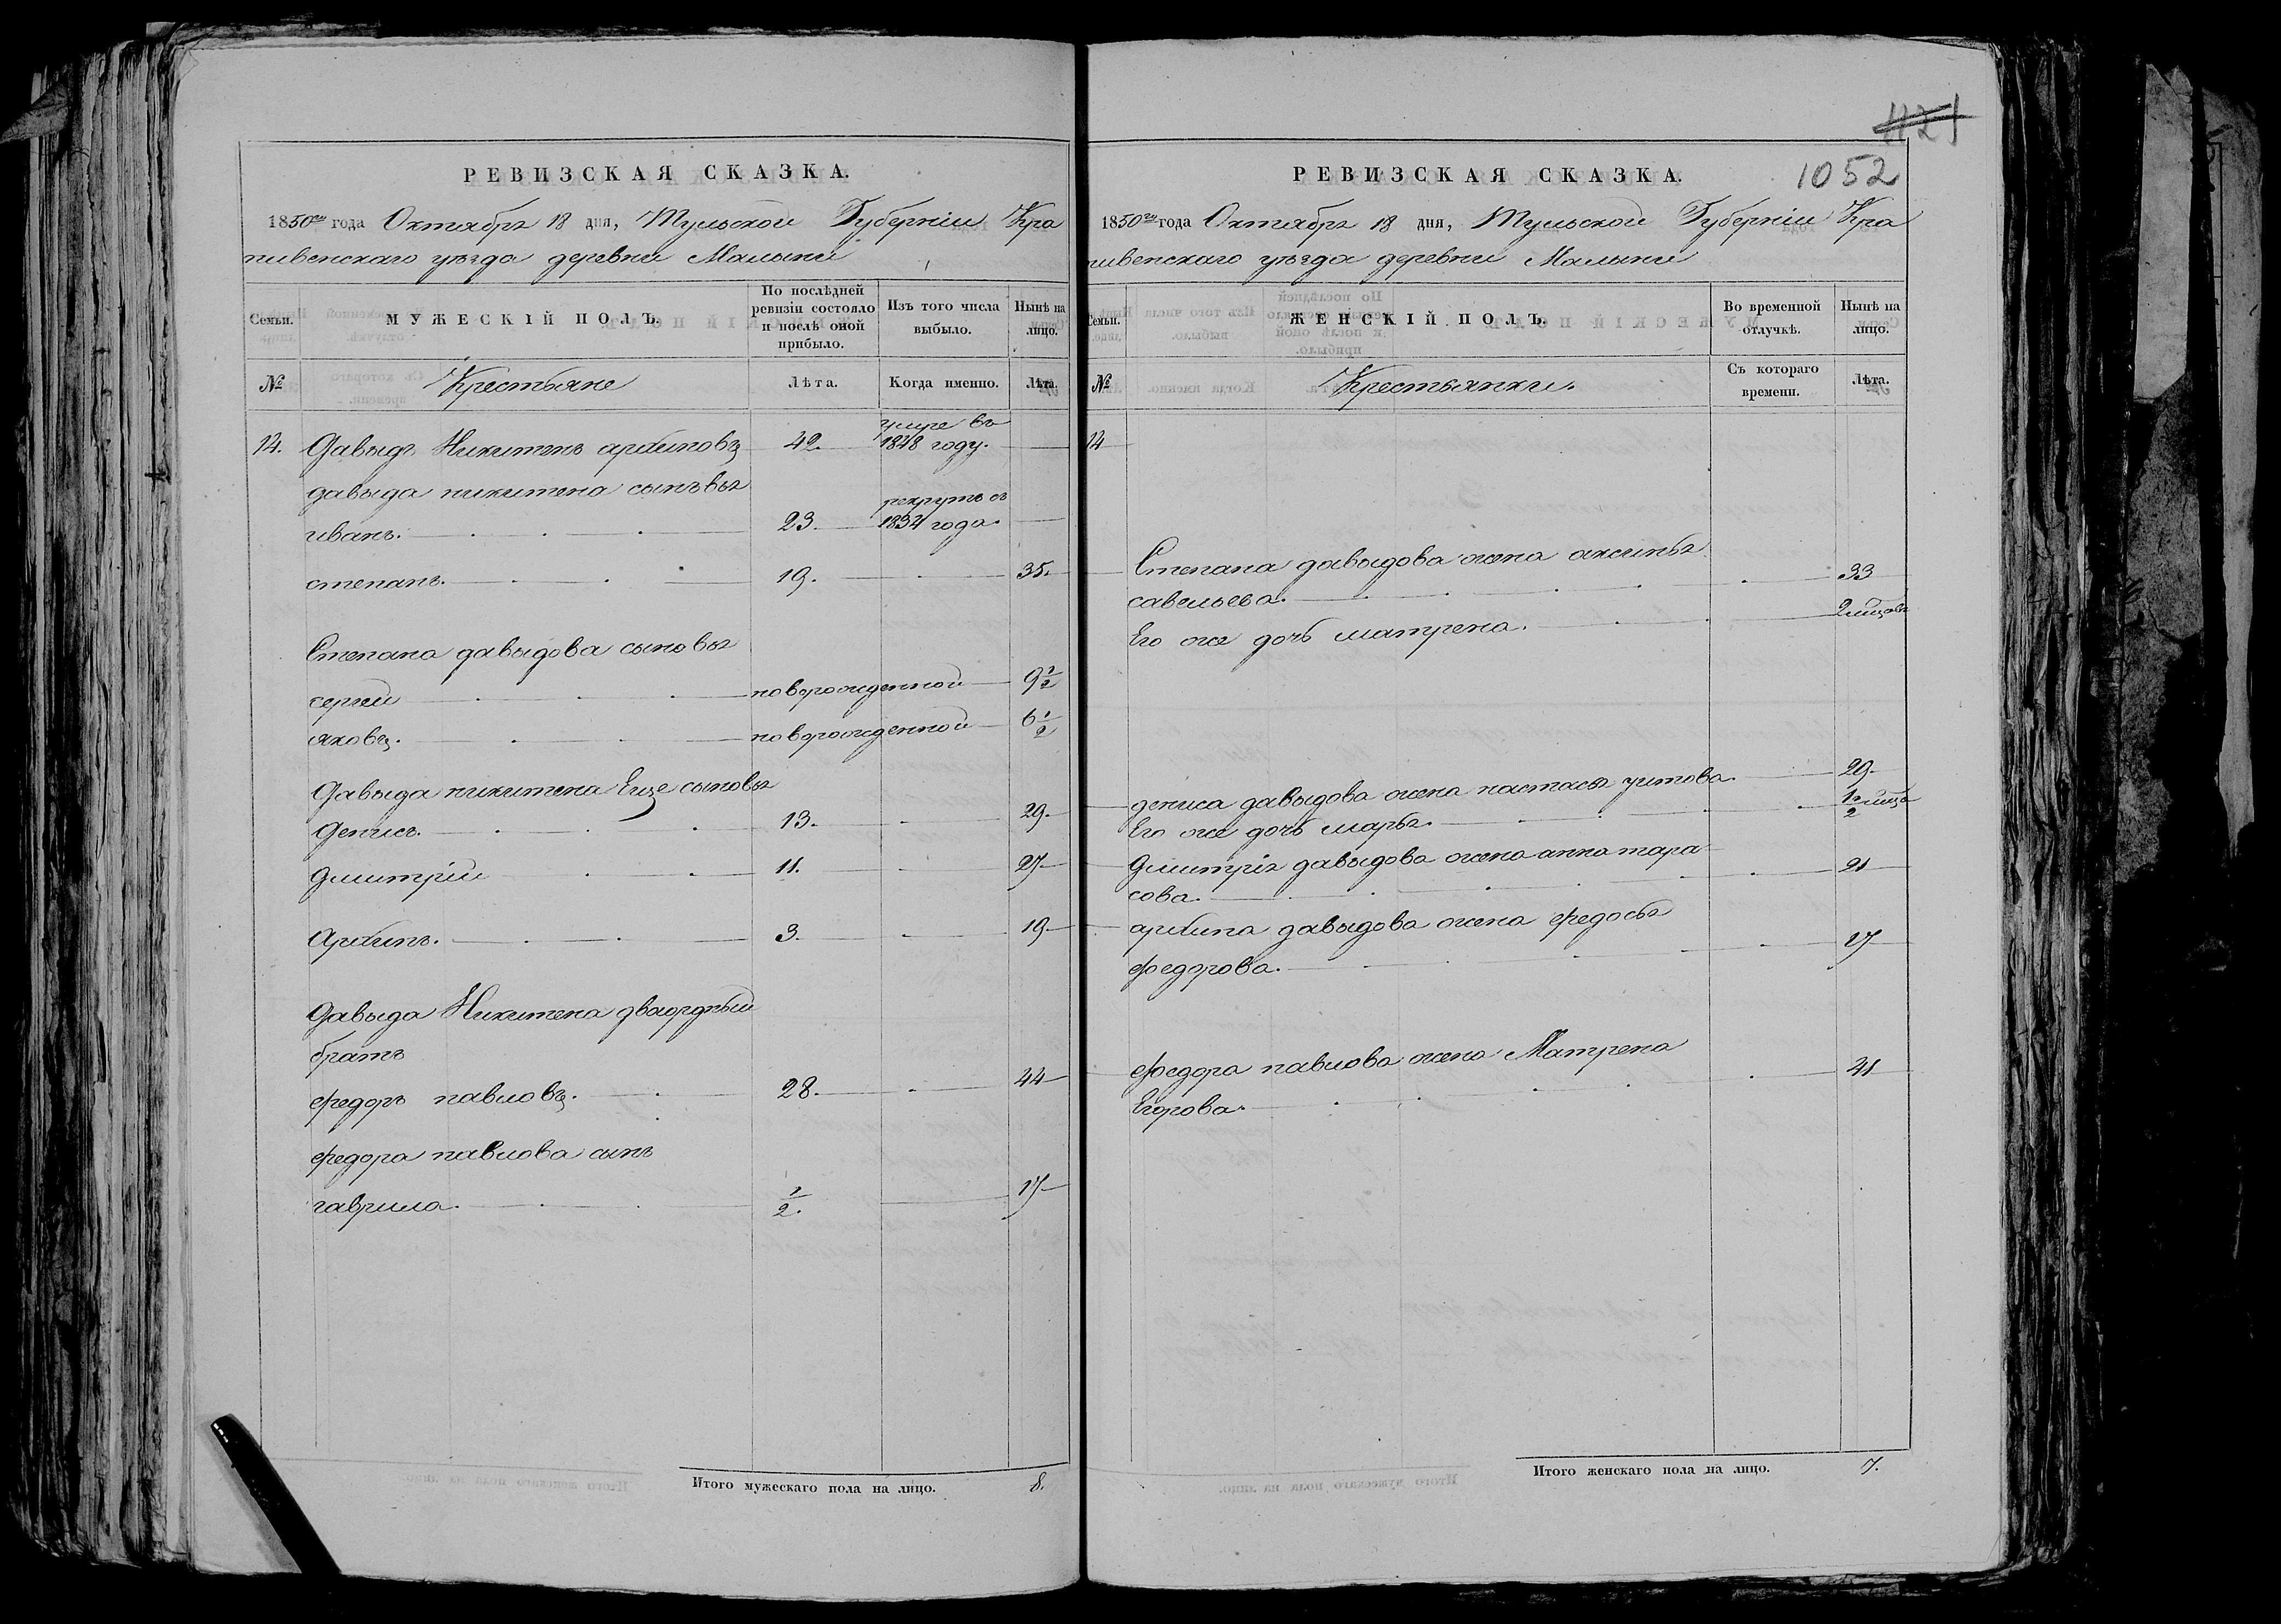 РЕВИЗСКАЯ СКАЗКА.
1850го года Октября 18 дня, Тульской Губернiи Кра
пивенскаго уѣзда деревни Малыни
Семьи.
МУЖЕСКIЙ ПОЛЪ.
По послѣдней ревизiи состояло и послѣ оной прибыло.
Изъ того числа выбыло.
Нынѣ на лицо.
№
Крестьяне
Лѣта.
Когда именно.
Лѣта.
14. Давыдъ Никитенъ архиповъ 42. умре въ 1848 году.
давыда никитена сыновья
иванъ. 23. рекрутъ съ 1834 года.
степанъ. 19. 35.
Степана давыдова сыновья
сергей новорожденной 9 1/2
яковъ. новорожденной 6 1/2
Давыда никитена Еще сыновья
Денисъ. 13. 29.
Дмитрiй 11. 27
Архипъ. 3. 19
Давыда Никитена двоюрдный
братъ
федоръ павловъ. 28. 44
федора павлова сынъ
гаврила. 1/2. 17
Итого мужескаго пола на лицо. 8.
1121
1052
РЕВИЗСКАЯ СКАЗКА.
1850го года Октября 18 дня, Тульской Губернiи Кра
пивенскаго уѣзда деревни Малыни
Семьи.
ЖЕНСКIЙ ПОЛЪ.
Во временной отлучкѣ.
Нынѣ на лицо.
№
Крестьянки.
Съ котораго времени.
Лѣта.
14
Степана давыдова жена аксинья
савельева. 33
Его же дочь матрена. 2
дениса давыдова жена настасья титова. 29.
Его же дочь марья. 1/2
Дмитрiя давыдова жена анна тара
сова. 21
архипа давыдова жена федосья
федорова. 17
федора павлова жена Матрена
Егорова. 41
Итого женскаго пола на лицо. 7.